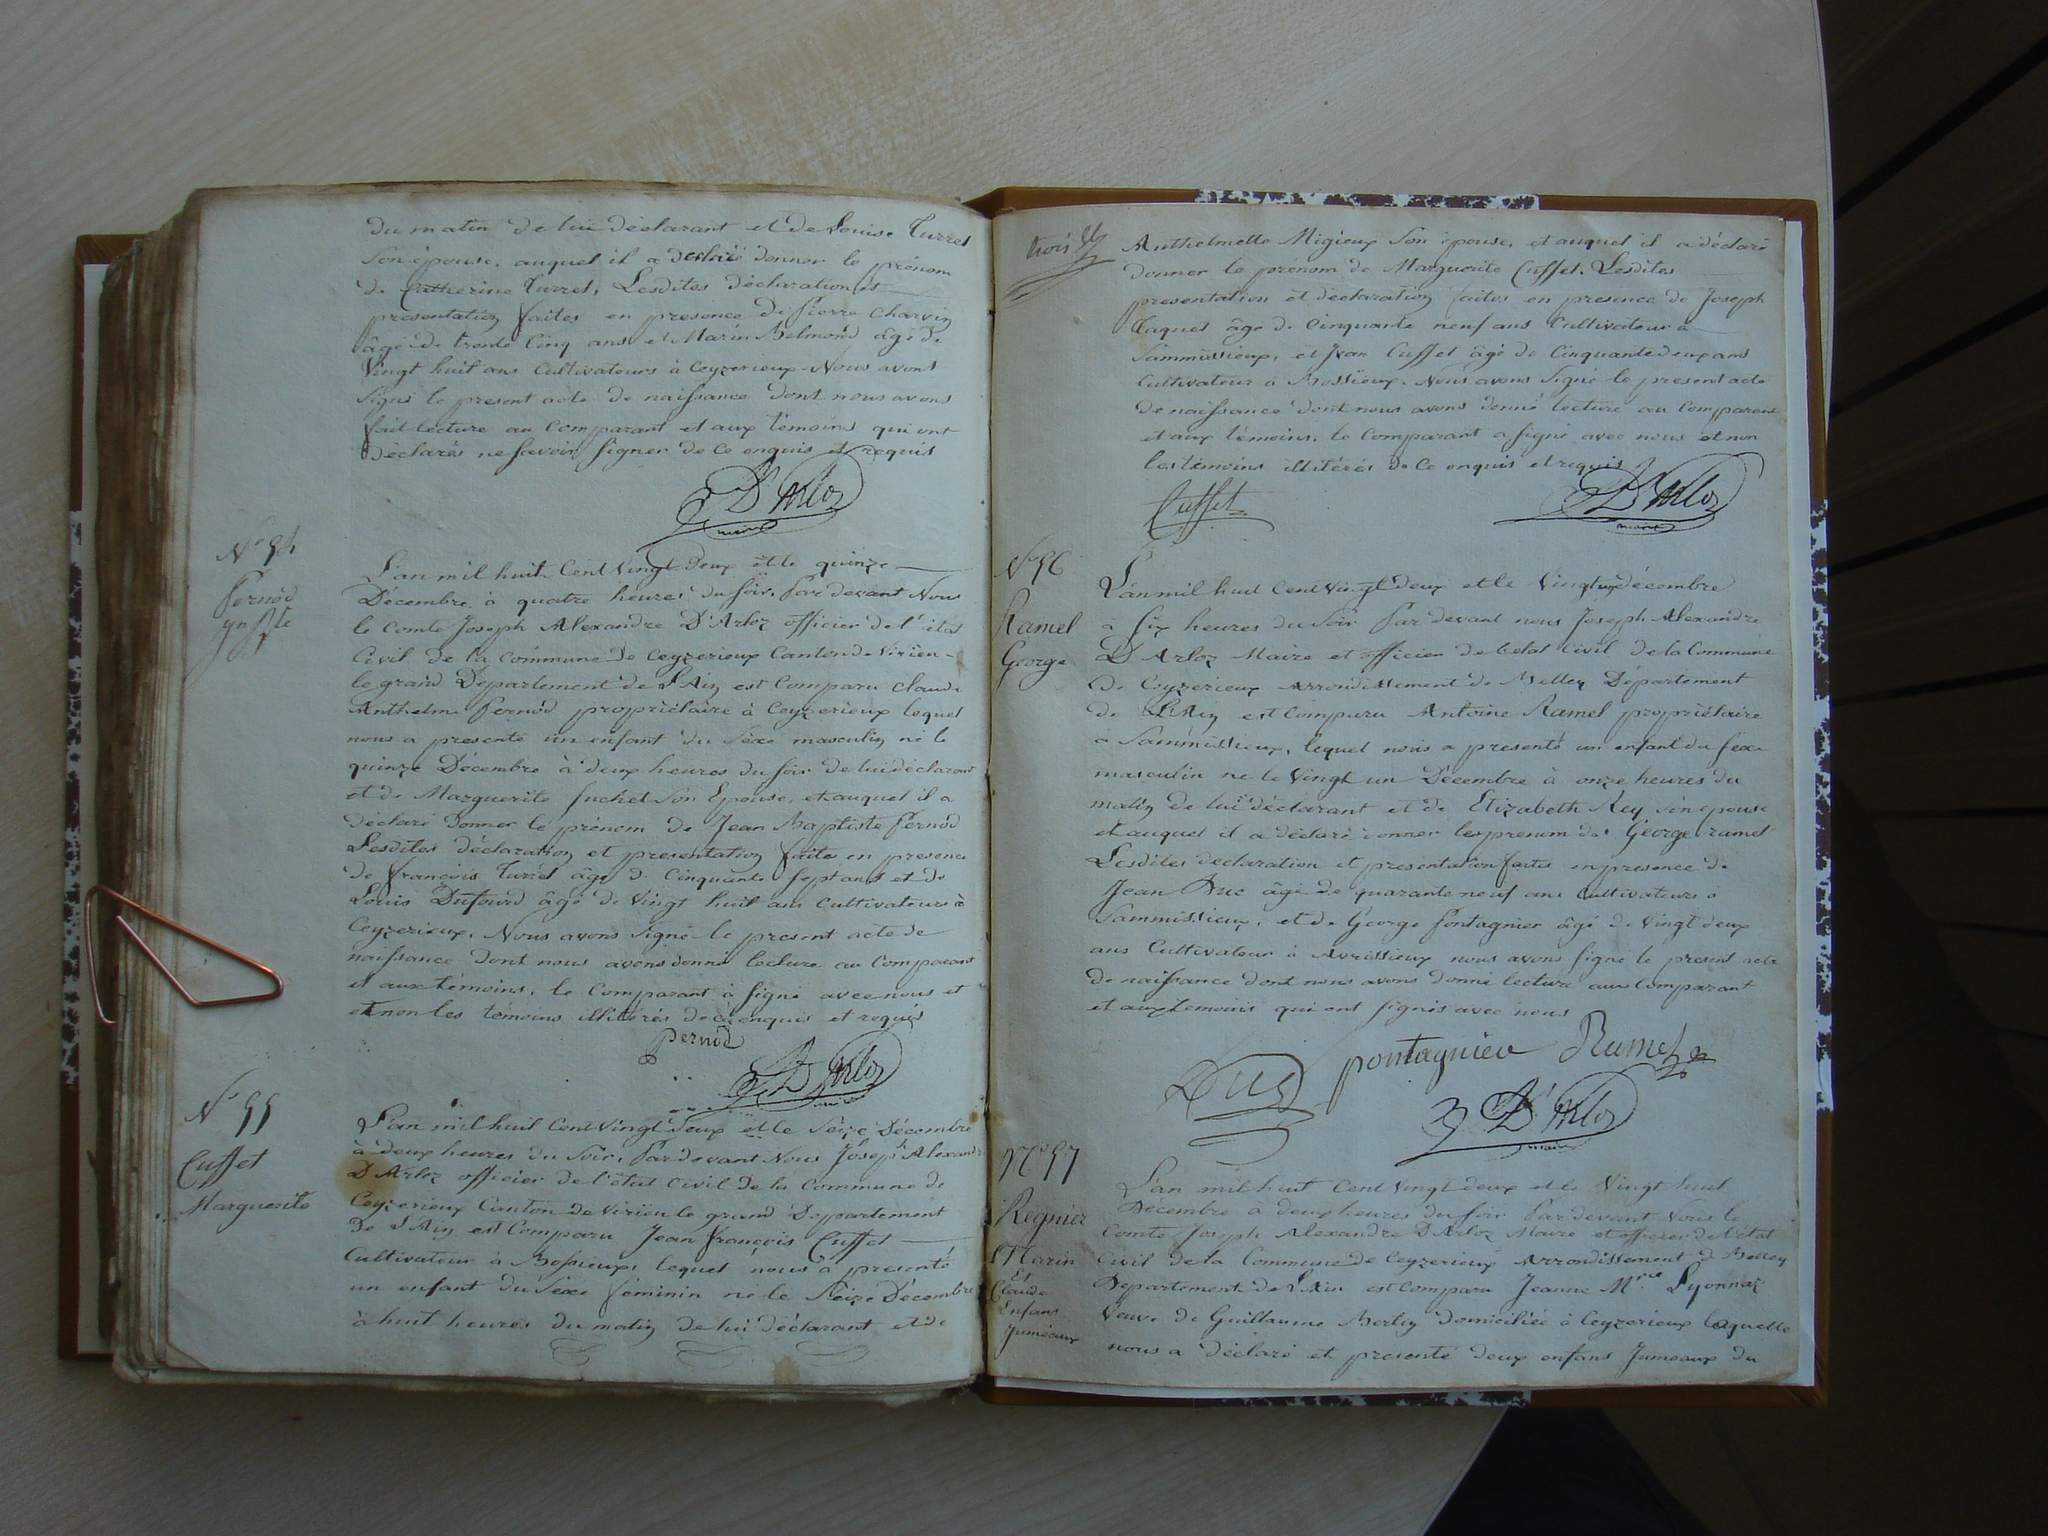 du matin de lui déclarant et de Louise Turrel
Son épouse, auquel il a déclaré donner le prénom
de Catherine Turrel, Lesdites déclaration et
presentation faites en presence de Pierre Charvin
âgé de trente Cinq ans et Marin Belmond âgé de
Vingt huit ans Cultivateurs à Ceyzerieux. Nous avons
signé le present acte de naissance dont nous avons
fait lecture au Comparant et aux témoins qui ont
déclarés ne savoir signer de ce enquis et requis
D'Arloz
maire
N° 54
Pernod
Jn Bte
L'an mil huit Cent Vingt Deux et le quinze
Décembre à quatre heures du soir. Par devant Nous
le Comte Joseph Alexandre D'Arloz officier de l'état
Civil de la commune de Ceyzerieux Canton de Virieu
le grand Departement de l'Ain est Comparu Claude
Anthelme Pernod propriétaire à Ceyzerieux lequel
nous a presenté un enfant du Séxe masculin né le
quinze Décembre à deux heures du soir de lui déclarant
et de Marguerite Suchet Son Epouse, et auquel il a
déclaré donner le prénom de Jean Baptiste Pernod
Lesdites déclaration et presentation faites en presence
de françois Turrel âgé de Cinquante sept ans et de
Louis Dufourd âgé de Vingt huit ans Cultivateurs à
Ceyzerieux. Nous avons signé le present acte de
naissance dont nous avons donné lecture au Comparant
et aux témoins. le Comparant à signé avec nous et
et non les témoins illitérés de ce enquis et requis
pernod
D'Arloz
maire
N° 55
Cuffet
Marguerite
L'an mil huit Cent Vingt Deux et le Seize Décembre
à deux heures du Soir, Par devant Nous Joseph Alexandre
D'Arloz officier de l'état Civil de la Commune de
Ceyzerieux Canton de Virieu le grand Departement
De l'Ain est Comparu Jean françois Cuffet
Cultivateur à Mossieux, lequel nous à presenté
un enfant du Séxe féminin né le Seize Décembre
à huit heures du matin de lui déclarant et de
trois
Anthelmette Migieux Son épouse, et auquel il a déclaré
donner le prénom de Marguerite Cuffet. Lesdites
presentation et déclaration faites en presence de Joseph
Jaquet âgé de Cinquante neuf ans Cultivateur à
Sammissieux, et Jean Cuffet âgé de Cinquante deux ans
Cultivateur à Mossieux. Nous avons Signé le present acte
de naissance dont nous avons donné lecture au Comparant
et aux témoins. le Comparant a signé avec nous et non
les témoins illitérés de Ce enquis et requis
Cuffet
D'Arloz
maire
N° 56
Ramel
George
L'an mil huit Cent Vingt deux et le Vingt un décembre
à six heures du Soir Par devant nous Joseph Alexandre
D'Arloz Maire et officier de l'etat Civil de la Commune
de Ceyzerieux Arrondissement de Belley Département
de L'Ain est Comparu Antoine Ramel propriétaire
à Sammissieux, lequel nous a presenté un enfant du sexe
masculin né le Vingt un Décembre à onze heures du
matin de lui déclarant et de Elizabeth Rey son epouse
et auquel il a déclaré donner les prenom de George ramel
Lesdites declaration et presentation faites en presence de
Jean Duc âgé de quarante neuf ans Cultivateurs à
Sammissieux, et de George Pontagnier âgé de Vingt deux
ans Cultivateur à Avrissieux nous avons signé le present acte
de naissance dont nous avons donné lecture au Comparant
et aux temoins qui ont signés avec nous
Duc pontagnieu Ramel
D'Arloz
maire
N° 57
Regnier
Marin
Et
Claude
Enfans
Jumeaux
L'an mil huit Cent Vingt deux et le Vingt huit
Décembre à deux heures du soir Par devant Nous le
Comte Joseph Alexandre D'Arloz Maire et officier de l'état
Civil de la Commune de Ceyzerieux Arrondissement de Belley
Departement de l'Ain est Comparu Jeanne Mrie Lyonnaz
Veuve de Guillaume Bertin domiciliée à Ceyzerieux laquelle
nous a déclaré et presenté deux enfans Jumeaux du